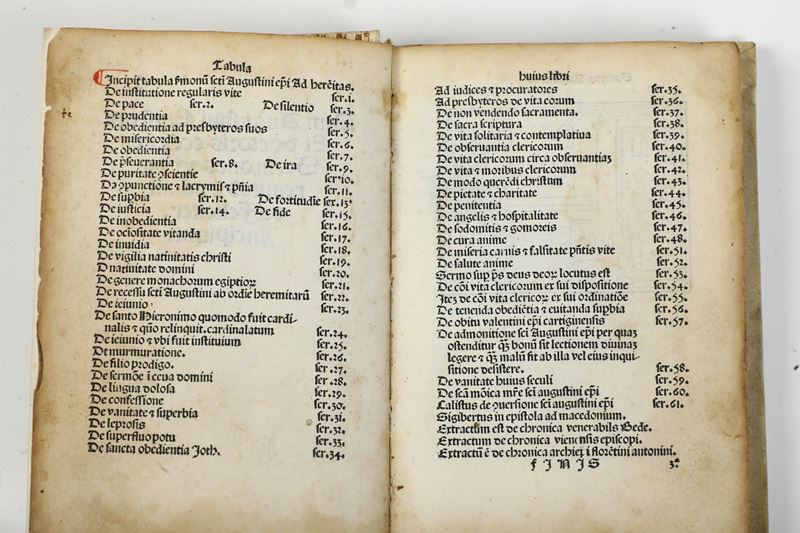 Tabula
Incipit tabula ẜmonū scti Augustini ep̄i Ad herēitas.
De institutione regularis vite ser.1.
De pace ser.2. De silentio ser.3.
De prudentia ser.4.
De obedientia ad presbyteros suos ser.5.
De misericordia ser.6.
De obedientia ser.7.
De p̄seuerantia ser.8. De ira ser.9.
De puritate ꝯscientie ser.10.
De ꝯpunctione ⁊ lacrymis ⁊ pn̄ia ser.11.
De supbia ser.12. De fortitudie ser.13.
De iusticia ser.14. De fide ser.15.
De inobedientia ser.16.
De ociositate vitanda ser.17.
De inuidia ser.18.
De vigilia natiuitatis christi ser.19.
D natiuitate domini ser.20.
De genere monachorum egiptioꝝ ser.21.
De recessu scti Augustini ab ordīe heremitarū ser.22.
De ieiunio ser.23.
De santo Hieronimo quomodo fuit cardi-
nalis ⁊ quō relinquit.cardinalatum ser.24.
De ieiunio ⁊ vbi fuit instituium ser.25.
Dt murmuratione. ser.26.
De filio prodigo. ser.27.
De sermōe ī cena domini ser.28.
De lingua dolosa ser.29.
De confessione ser.30.
De vanitate ⁊ superbia ser.31.
De leprosis ser.32.
De superfluo potu ser.33.
De sancta obedientia Joth. ser.34.
huius libri
Ad iudices ⁊ procuratores ser.35.
Ad presbyteros de vita eorum ser.36.
De non vendendo sacramenta. ser.37.
De sacra scriptura ser.38.
De vita solitaria ⁊ contemplatiua ser.39.
De obseruantia clericorum ser.40.
De vita clericorum circa obseruantiaȝ ser.41.
De vita ⁊ moribus clericorum ser.42.
De modo querēdi christum ser.43.
De pietate ⁊ charitate ser.44.
De penitentia ser.45.
De angelis ⁊ hospitalitate ser.46.
De sodomitis ⁊ gomoreis ser.47.
De cura anime ser.48.
De miseria carnis ⁊ falsitate pn̄tis vite ser.51.
De salute anime ser.52.
Sermo sup p̄s deus deoꝝ locutus est ser.53.
De cōi vita clericorum ex sui dispositione ser.54.
Iteȝ de cōi vita clericoꝝ ex sui ordinatiōe ser.55.
De tenenda obediētia ⁊ euitanda supbia ser.56.
De obitu valentini ep̄i cartiginensis ser.57.
De admonitione sci Augustini ep̄i per quaȝ
ostenditur qꝫ bonū sit lectionem diuinaȝ
legere ⁊ qꝫ malū sit ab illa vel eius inqui-
sitione desistere. ser.58.
De vanitate huius seculi ser.59.
De scā mōica mr̄e sci augustini ep̄i ser.60.
Calistus de ꝯuersione sci augustini ep̄i ser.61.
Sigibertus in epistola ad macedonium.
Extractum est de chronica venerabilis Bede.
Extractum de chronica viennsis episcopi.
Extractū ē de chronica archiep̄i florētini antonini.
F I N I S 3.